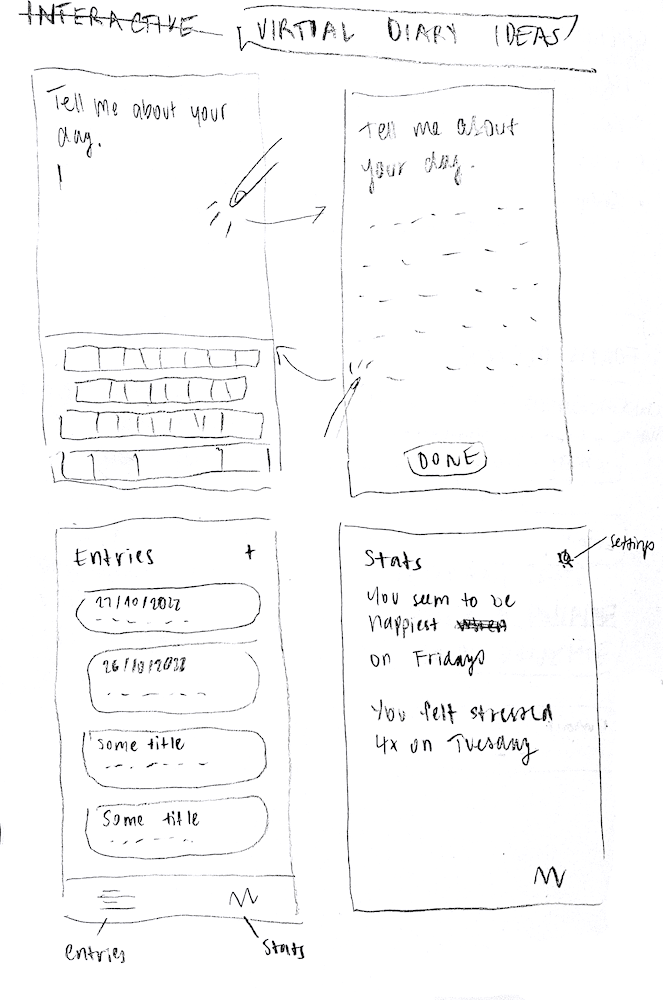 INTERACTIVE VIRTUAL DIARY IDEAS
Tell me about your
day.
Tell me about
your day.
DONE
Entries +
27/10/2022
26/10/2022
some title
Some title
entries
stats
Stats
settings
You seem to be
happiest when
on Fridays
You felt stressed
4x on Tuesday